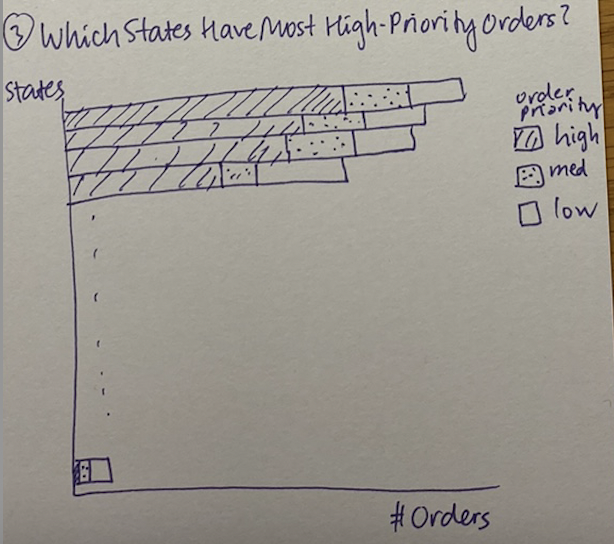 ③ Which States Have Most High-Priority Orders?
States
order
priority
high
med
low
# Orders